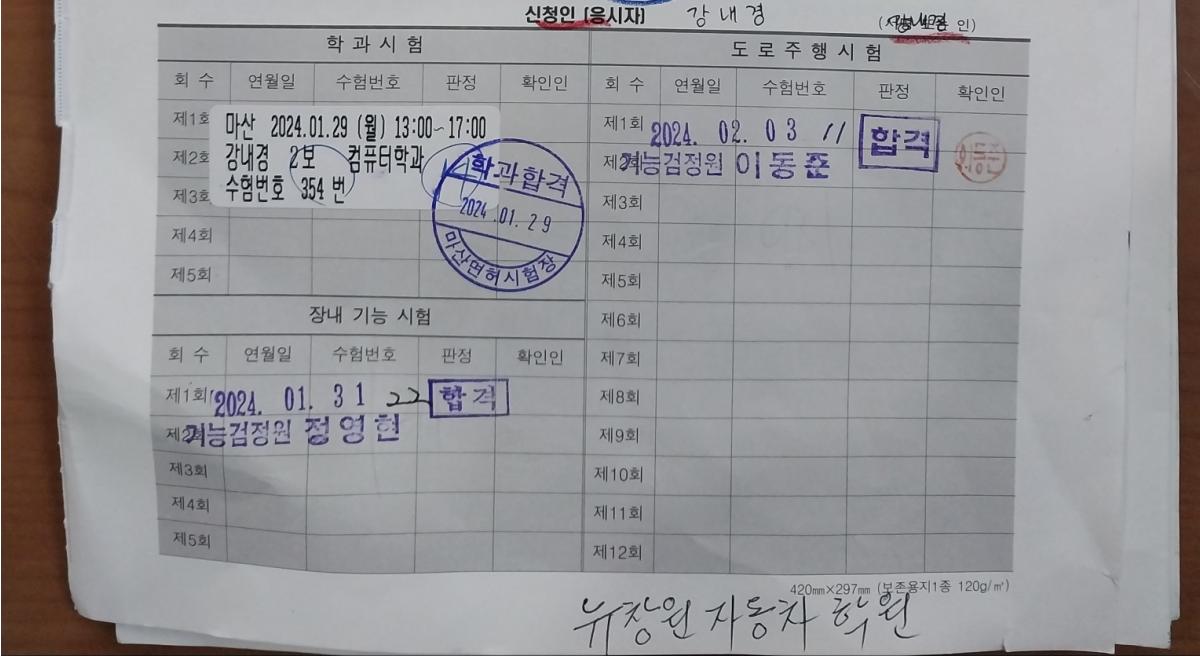 신청인 [응시자] 강내경 (서명 또는 인)
강내경
학과시험
회 수 연월일 수험번호 판정 확인인
제1회
마산 2024.01.29 (월) 13:00~17:00
제2회
강내경 2보 컴퓨터학과
제3회
수험번호 354 번
학과합격
2024.01.29
마산면허시험장
제4회
제5회
장내 기능 시험
회 수 연월일 수험번호 판정 확인인
제1회 2024. 01. 31 22 합격
제2회 기능검정원 정영현
제3회
제4회
제5회
도로주행시험
회 수 연월일 수험번호 판정 확인인
제1회 2024. 02. 03 11 합격
제2회 기능검정원 이동준
제3회
제4회
제5회
제6회
제7회
제8회
제9회
제10회
제11회
제12회
420㎜×297㎜ (보존용지1종 120g/㎡)
뉴창원 자동차 학원